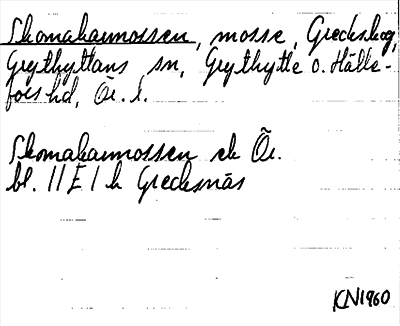 Skomakarmossen, mosse, Grecksåsg,
Grythyttans sn, Grythytte o. Hälle-
fors hd, Ör. l.
Skomakarmossen ek Ör.
bl. 11E1h Grecksnäs
KN1960